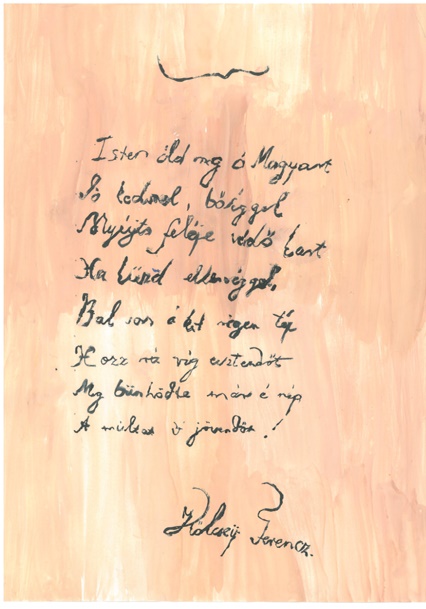 Isten áld meg a Magyart
Jó kedvvel, bőséggel
Nyújts feléje védő kart
Ha küzd ellenséggel,
Bal sors a kit régen tép
Hozz rá víg esztendőt
Meg bűnhődte már é nép
A múltat s jövendőt!
Kölcsey Ferencz.